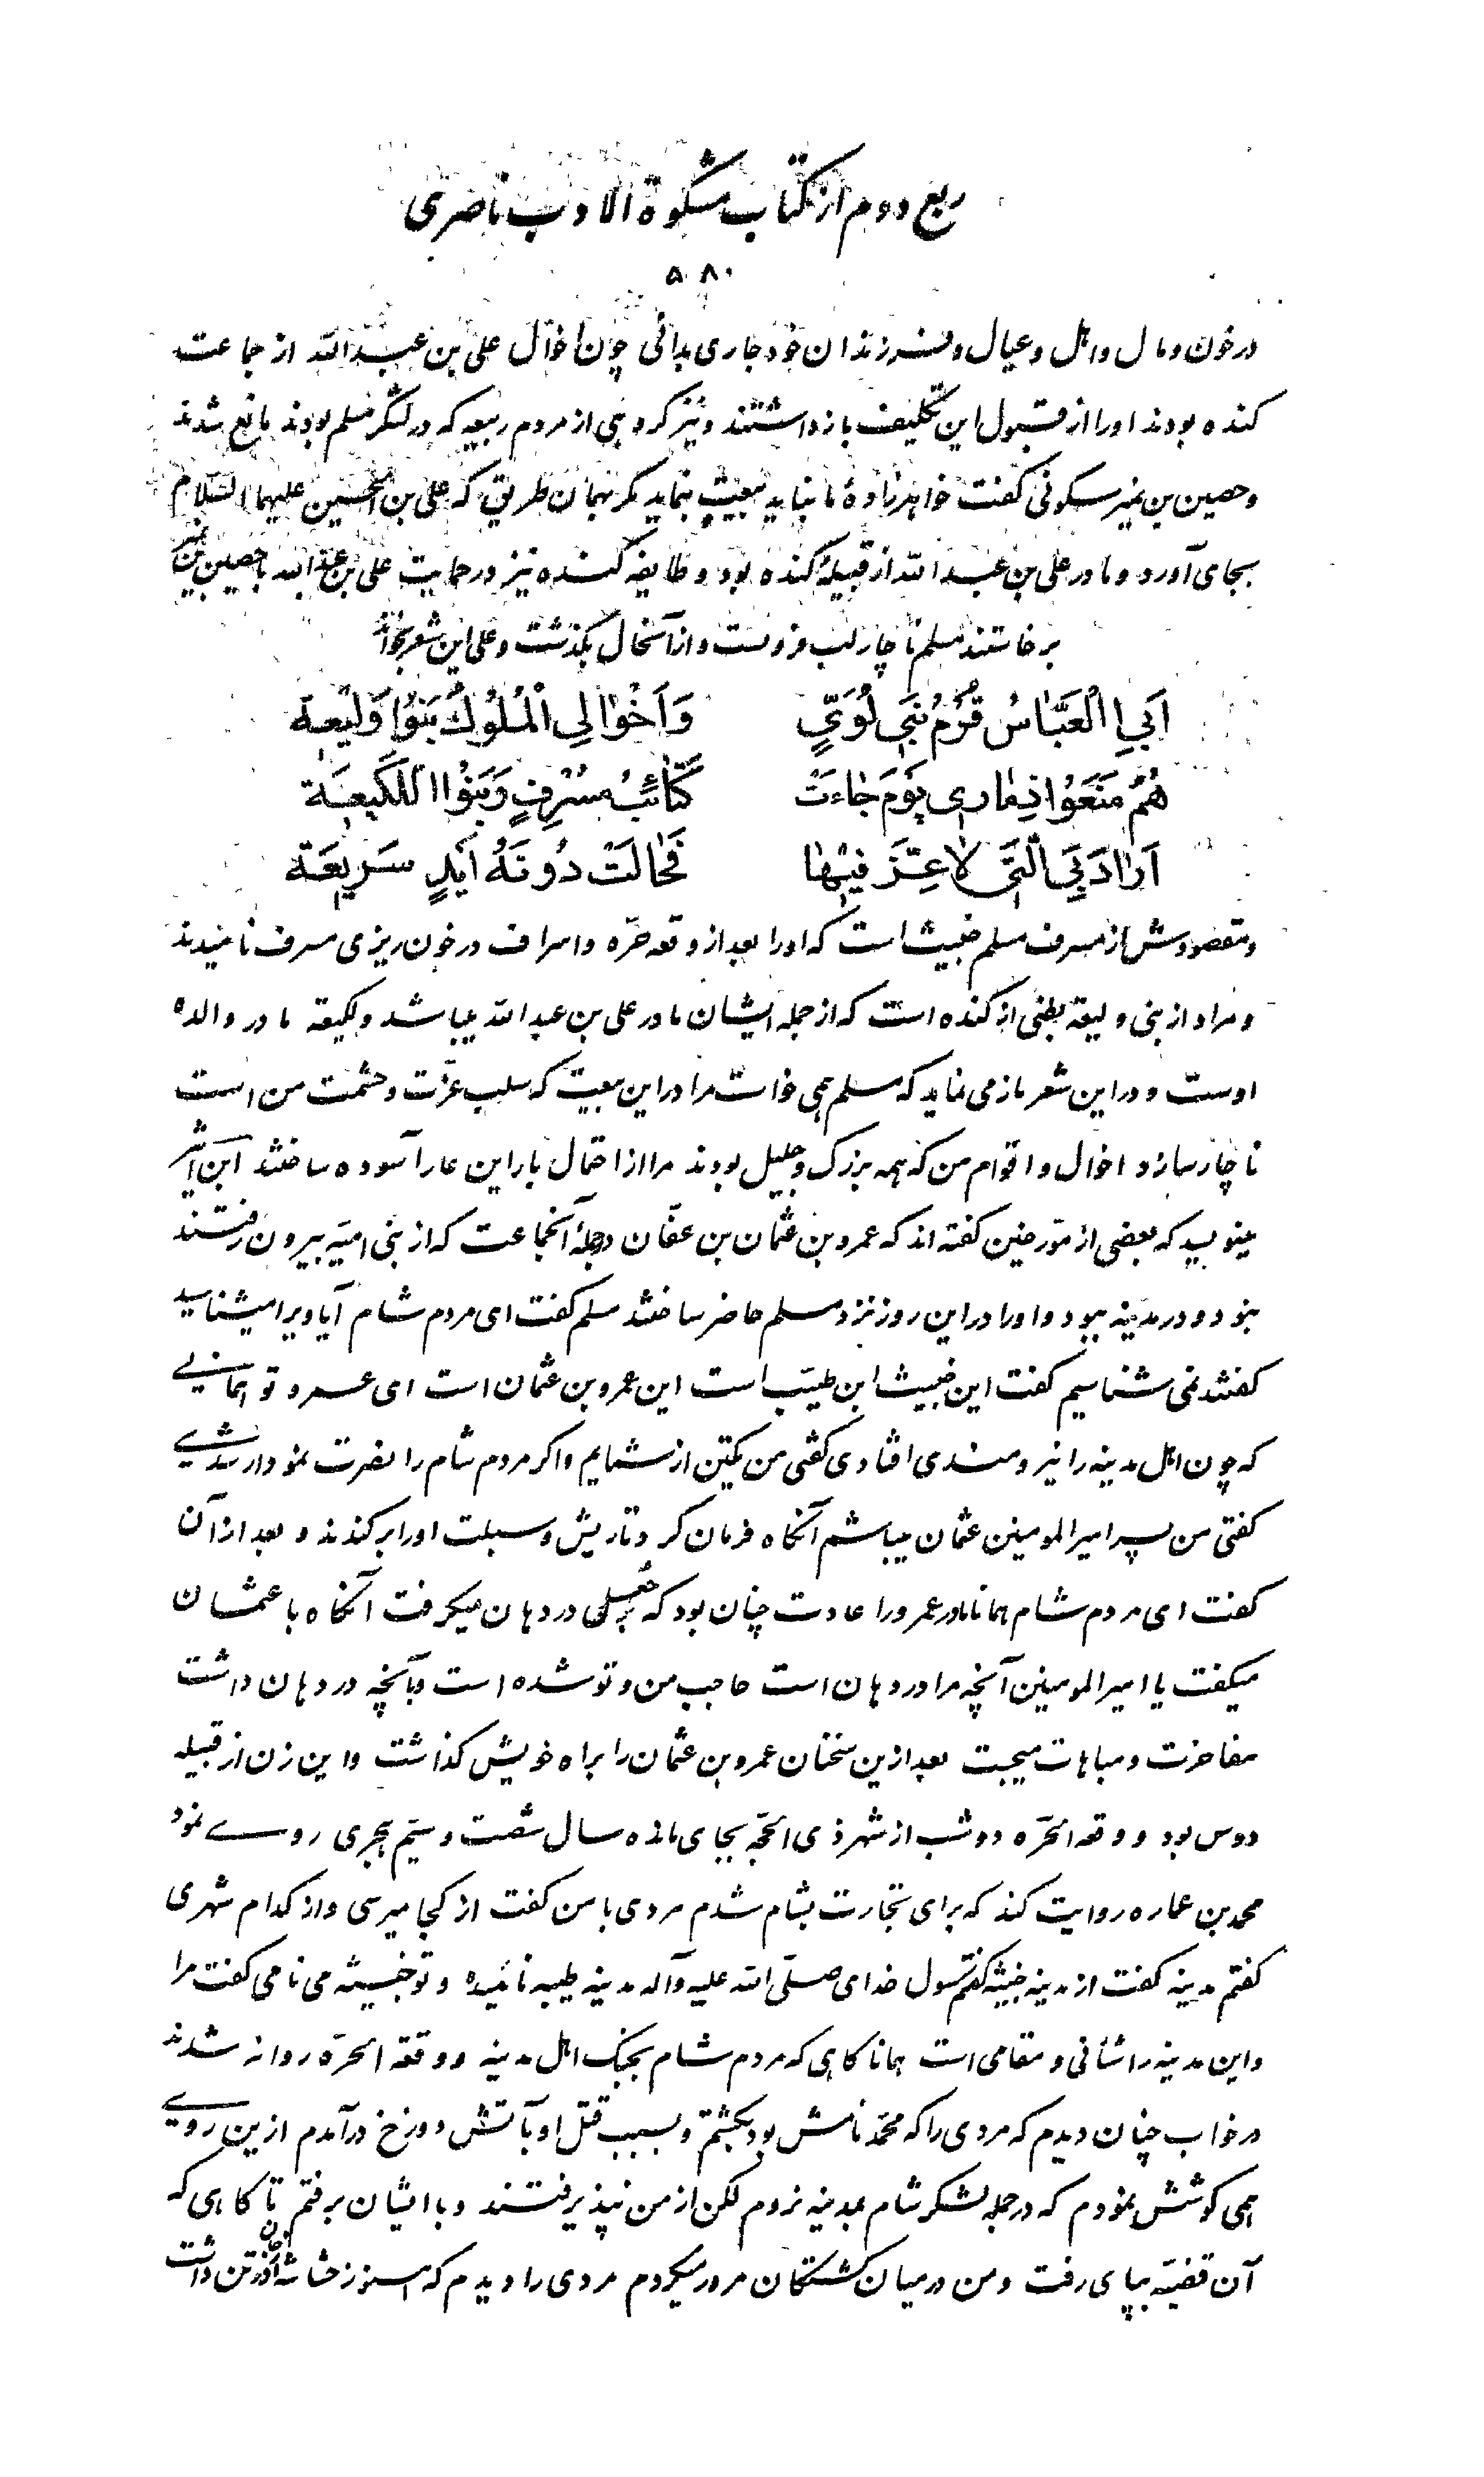 ربع دوم از کتاب مشکوة الادب ناصری
۵۸۰
در خون و مال و اهل و عیال و فرزندان خود جاری بدانی چون اخوال علی بن عبد الله از جماعت
کنده بودند او را از قبول این تکلیف باز داشتند و نیز گروهی از مردم ربیعه که در لشگر مسلم بودند مانع شدند
و حصین بن نمیر سکونی گفت خواهرزادهٔ ما نباید بیعت نماید مگر بهمان طریق که علی بن الحسین علیهما السلام
بجای آورد و مادر علی بن عبد الله از قبیلهٔ کنده بود و طایفه کنده نیز در حمایت علی بن عبد الله با حصین بن نمیر
برخاستند مسلم ناچار لب فروبست و از آنحال بگذشت و علی این شعر بخواند
اَبِی الْعَبّاسُ قَرْمُ بَنی لُوَیٍّ وَاَخْوالِی الْمُلُوكُ بَنُوا وَلیعَة
هُمُ مَنَعَوُا ذِماری یَوْمَ جاءَت کَتائِبُ مُسْرِفٍ وَبَنُوا اللَّکیعَة
اَرادَ بِیَ الَّتی لا عِزَّ فیها فَحالَتْ دُونَهُ اَیْدٍ سَریعَة
و مقصودش از مسرف مسلم خبیث است که او را بعد از وقعه حرّه و اسراف در خون ریزی مسرف نامیدند
و مراد از بنی ولیعة بطنی از کنده است که از جمله ایشان مادر علی بن عبد الله میباشد و لکیعة مادر والده
اوست و در این شعر باز می نماید که مسلم همی خواست مرا در این بیعت که سلب عزّت و حشمت من است
ناچار سازد اخوال و اقوام من که همه بزرگ و جلیل بودند مرا از احتمال بار این عار آسوده ساختند ابن اثیر
مینویسد که بعضی از مؤرخین گفته اند که عمرو بن عثمان بن عفّان در جملهٔ آنجماعت که از بنی امیّه بیرون رفتند
نبود و در مدینه ببود و او را در این روز نزد مسلم حاضر ساختند مسلم گفت ای مردم شام آیا ویرا میشناسید
گفتند نمی شناسیم گفت این خبیث ابن طیّب است این عمرو بن عثمان است ای عمرو تو همانی
که چون اهل مدینه را نیرومندی افتادی گفتی من یکتن از شمایم و اگر مردم شام را نصرت نمودار شدی
گفتی من پسر امیرالمومنین عثمان میباشم آنگاه فرمان کرد تا ریش و سبلت او را برکندند و بعد از آن
گفت ای مردم شام همانا مادر عمرو را عادت چنان بود که جعلی در دهان میگرفت آنگاه با عثمان
میگفت یا امیرالمومنین آنچه مرا در دهان است حاجب من و تو شده است و بآنچه در دهان داشت
مفاخرت و مباهات میجست بعد ازین سخنان عمرو بن عثمان را براه خویش گذاشت و این زن از قبیله
دوس بود و وقعه الحرّه دو شب از شهر ذی الحجّه بجای مانده سال شصت و سیّم هجری روی نمود
محمد بن عماره روایت کند که برای تجارت بشام شدم مردی با من گفت از کجا میرسی و از کدام شهری
گفتم مدینه گفت از مدینه خبیثه گفتم رسول خدای صلّی الله علیه وآله مدینه طیبه نامیده و تو خبیثه می نامی گفت مرا
و این مدینه را شانی و مقامی است همانا گاهی که مردم شام بجنگ اهل مدینه و وقعه الحرّه روانه شدند
در خواب چنان دیدم که مردی را که محمّد نامش بود بکشتم و بسبب قتل او بآتش دوزخ درآمدم ازین روی
همی کوشش نمودم که در جمله لشکر شام بمدینه نروم لکن از من نپذیرفتند و با ایشان برفتم تا گاهی که
آن قضیّه بپای رفت و من در میان کشتگان مرور میکردم مردی را دیدم که هنوز حشاشهٔ جان در تن داشت